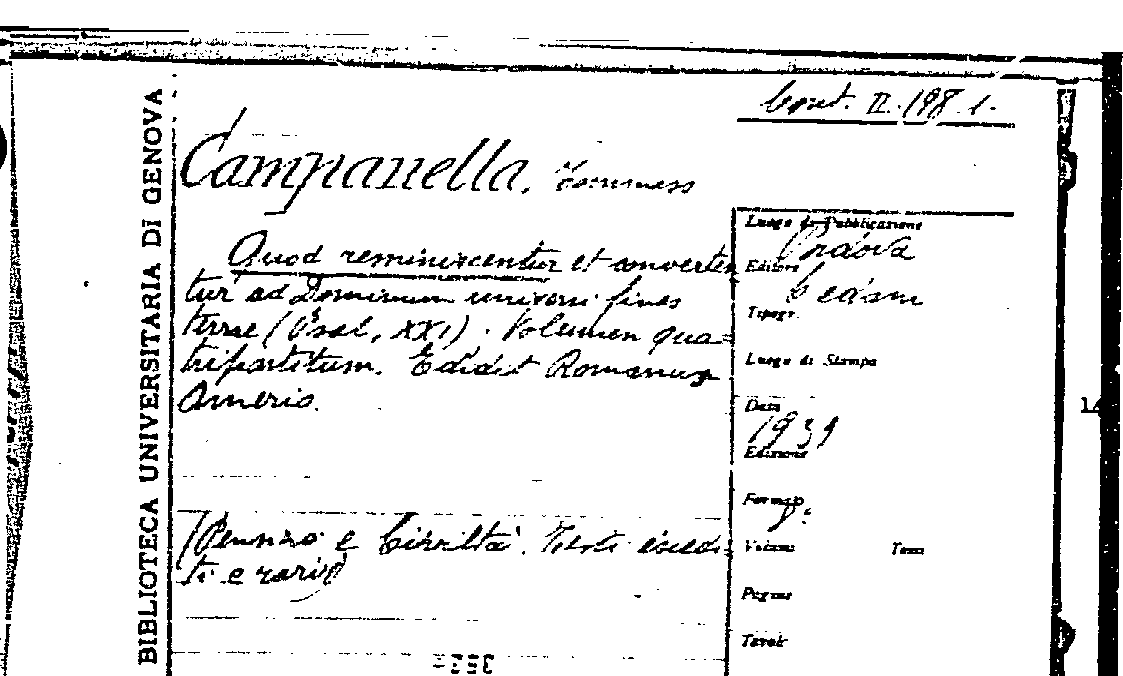 Cont. II. 198. 1.
BIBLIOTECA UNIVERSITARIA DI GENOVA
Campanella, Tommaso
Quod reminiscentur et converten
tur ad Dominum universi fines
terrae (Psal. XXI). Volumen qua=
tripartitum. Edidit Romanus
Amerio.
(Pensiero e Civiltà. Testi inedi=
ti e rari)
Luogo di Pubblicazione
Padova
Editore
Cedam
Tipogr.
Luogo di Stampa
Data
1939
Edizione
Formato
8°
Volume Tomo
Pagine
Tavole